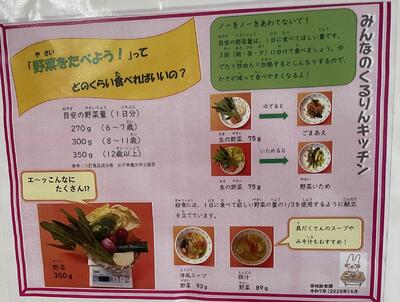 みんなのくるりんキッチン
「野菜をたべよう！」って
どのくらい食べればいいの？
目安の野菜量（1日分）
270g（6〜7歳）
300g（8〜11歳）
350g（12歳以上）
エ〜ッこんなに
たくさん!?
野菜
350g
ノー！ノー！あわてないで！
目安の野菜量は、1日に食べてほしい量です。
3回（朝・昼・夕）に分けて食べましょう。ゆ
でたり炒めたり加熱するとしんなりするので、
かさが減って食べやすくなるよ！
ゆでると
生の野菜 75g
ごまあえ
いためると
生の野菜 75g
野菜いため
給食には、1日に食べて欲しい野菜の量の1/3を使用するように献立
を立てています。
洋風スープ
野菜 93g
豚汁
野菜 89g
具だくさんのスープや
みそ汁もおすすめ！
学校給食課
令和7年（2025年）6月